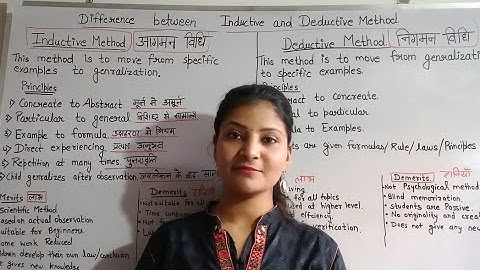 Difference between Inductive and Deductive Method
Inductive Method आगमन विधि
This method is to move from specific
examples to genralization.
Principles
→ Concreate to Abstract मूर्त से अमूर्त
→ Particular to general विशिष्ट से सामान्य
→ Example to formula. उदाहरण से नियम
→ Direct experiencing. प्रत्यक्ष अनुभव
→ Repetition at many times. पुनरावृत्ति
→ Child genralizes after observation.
Merits लाभ
Scientific Method
Based on actual observation
Suitable for Beginners
Home work Reduced
Children develop their own law/conclusion.
It gives new knowledge
Demerits
Not suitable for all
Time
Deductive Method निगमन विधि
This method is to move from genralization
to specific examples.
Principles
Abstract to Concrete.
to particular
to Examples.
are given formulas/Rule/laws/Principles
लाभ
for all topics
at higher level.
efficiency.
verification.
Demerits. हानियाँ
Not Psychological method
Blind memorization.
Students are Passive.
No originality and
Does not give any